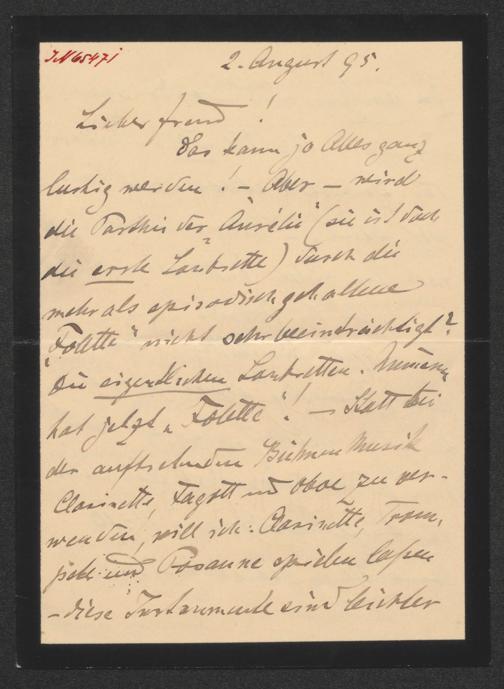 IN 65471
2. August 95.
Lieber Freund!
Das kann ja Alles ganz
lustig werden! – Aber – wird
die Parthie der „Aurelie" (sie ist doch
die erste Soubrette) durch die
mehr als episodisch gehaltene
„Folette" nicht sehr beeinträchtigt?
Die eigentlichen Soubretten-Nummern
hat jetzt „Folette"! – Statt bei
der auftretenden Bühnen Musik
Clarinette, Fagott und Oboe zu ver-
wenden, will ich: Clarinette, Trom-
pete und Posaune spielen lassen
– diese Instrumente sind leichter